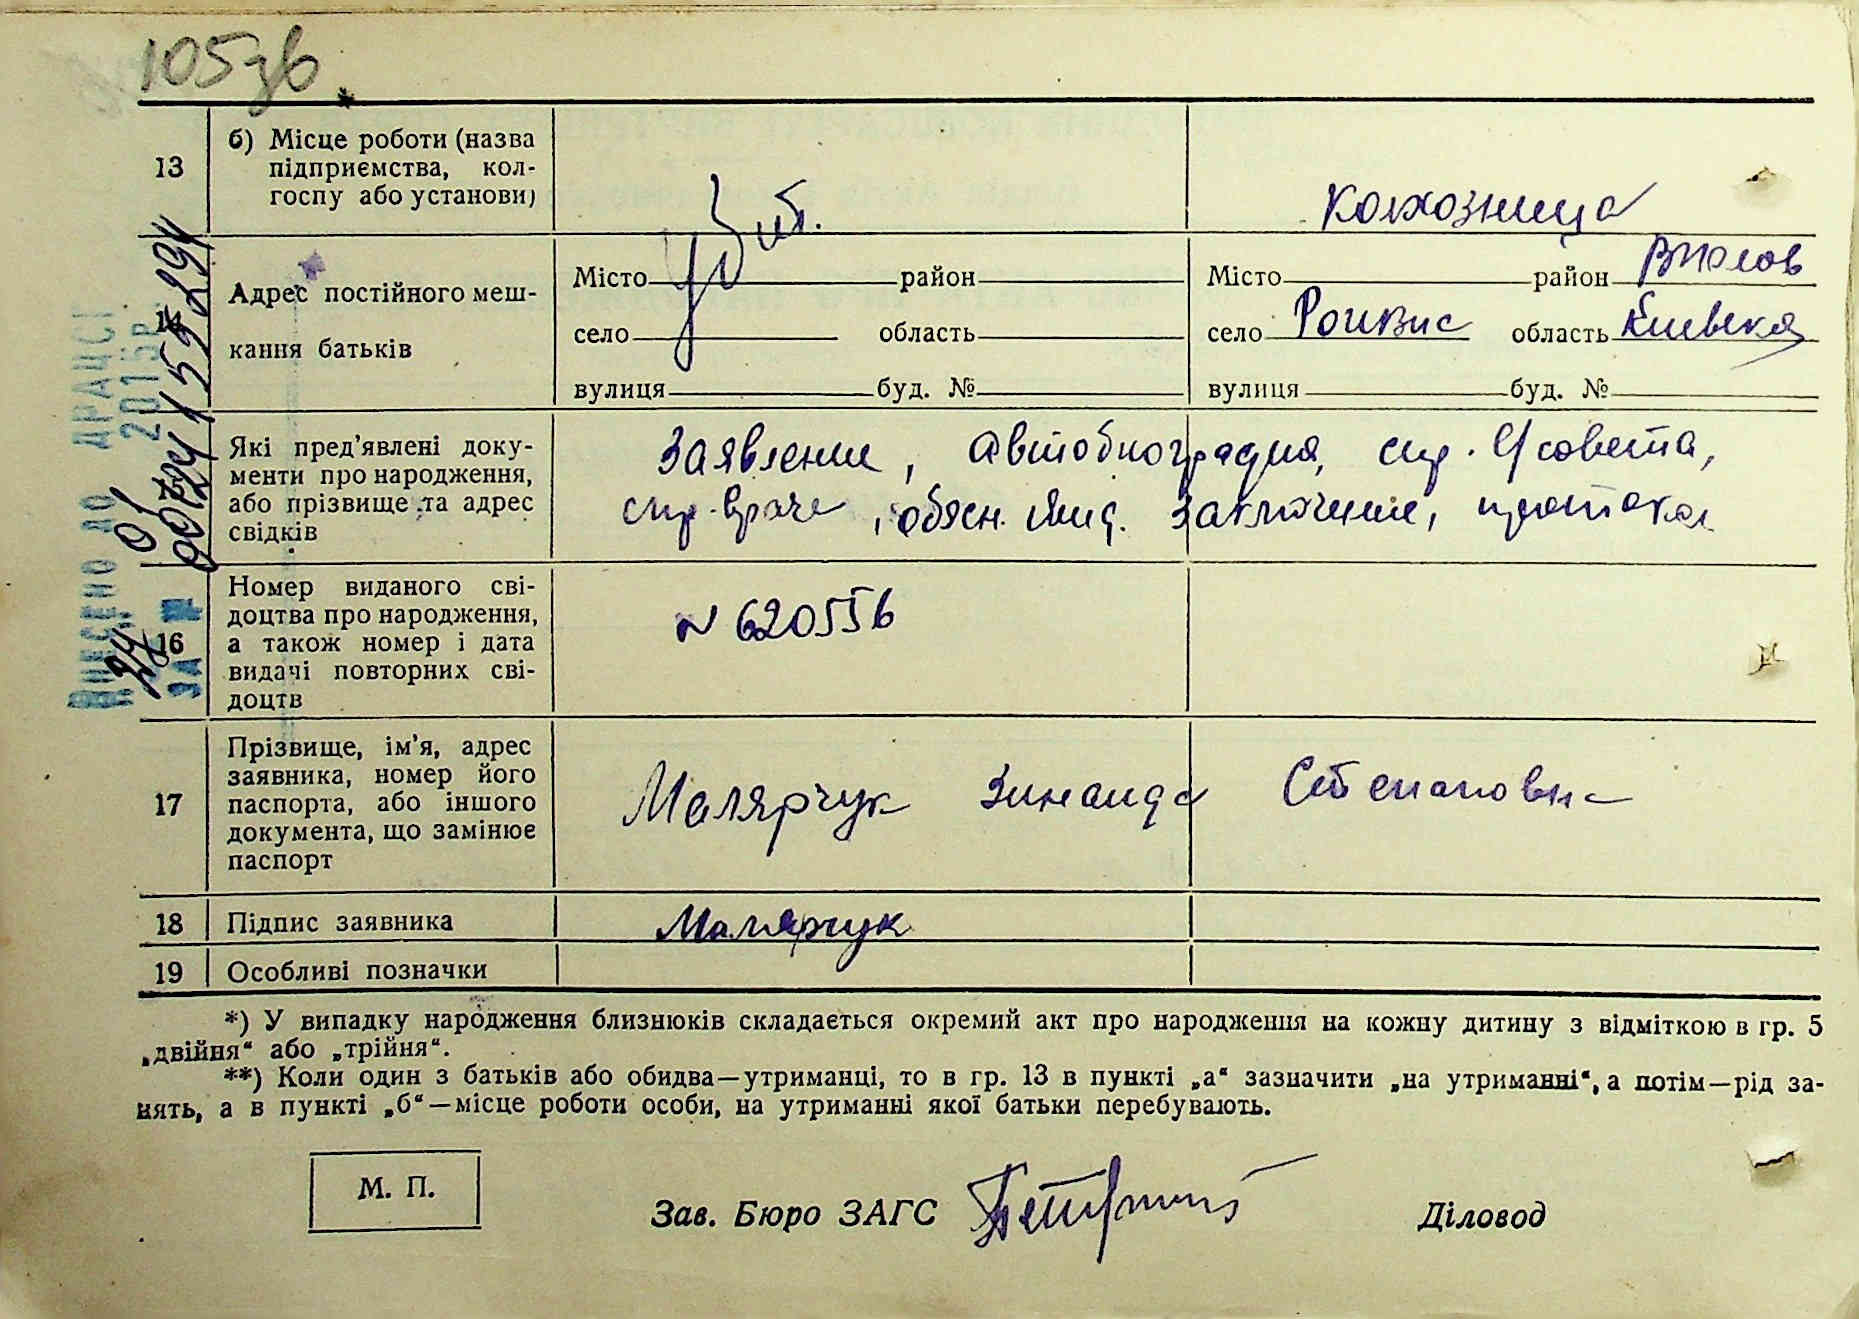 105зв
13
б) Місце роботи (назва
підприємства, кол-
госпу або установи)
колхозница
14
Адрес постійного меш-
кання батьків
Місто район
село область
вулиця буд. №
Місто район
село область Киевская
вулиця буд. №
Які пред’явлені доку-
менти про народження,
або прізвище та адрес
свідків
Заявление, автобиография, спр. с/совета,
спр. врача, объясн. заключение, протокол
16
Номер виданого сві-
доцтва про народження,
а також номер і дата
видачі повторних сві-
доцтв
N 620556
17
Прізвище, ім’я, адрес
заявника, номер його
паспорта, або іншого
документа, що замінює
паспорт
Малярчук Зинаида Степановна
18
Підпис заявника
Малярчук
19
Особливі позначки
*) У випадку народження близнюків складається окремий акт про народження на кожну дитину з відміткою в гр. 5
„двійня“ або „трійня“.
**) Коли один з батьків або обидва—утриманці, то в гр. 13 в пункті „а“ зазначити „на утриманні“, а потім—рід за-
нять, а в пункті „б“—місце роботи особи, на утриманні якої батьки перебувають.
М. П.
Зав. Бюро ЗАГС
Діловод
Внесено до ДРАЦСГ
24 01 2015р.
за №